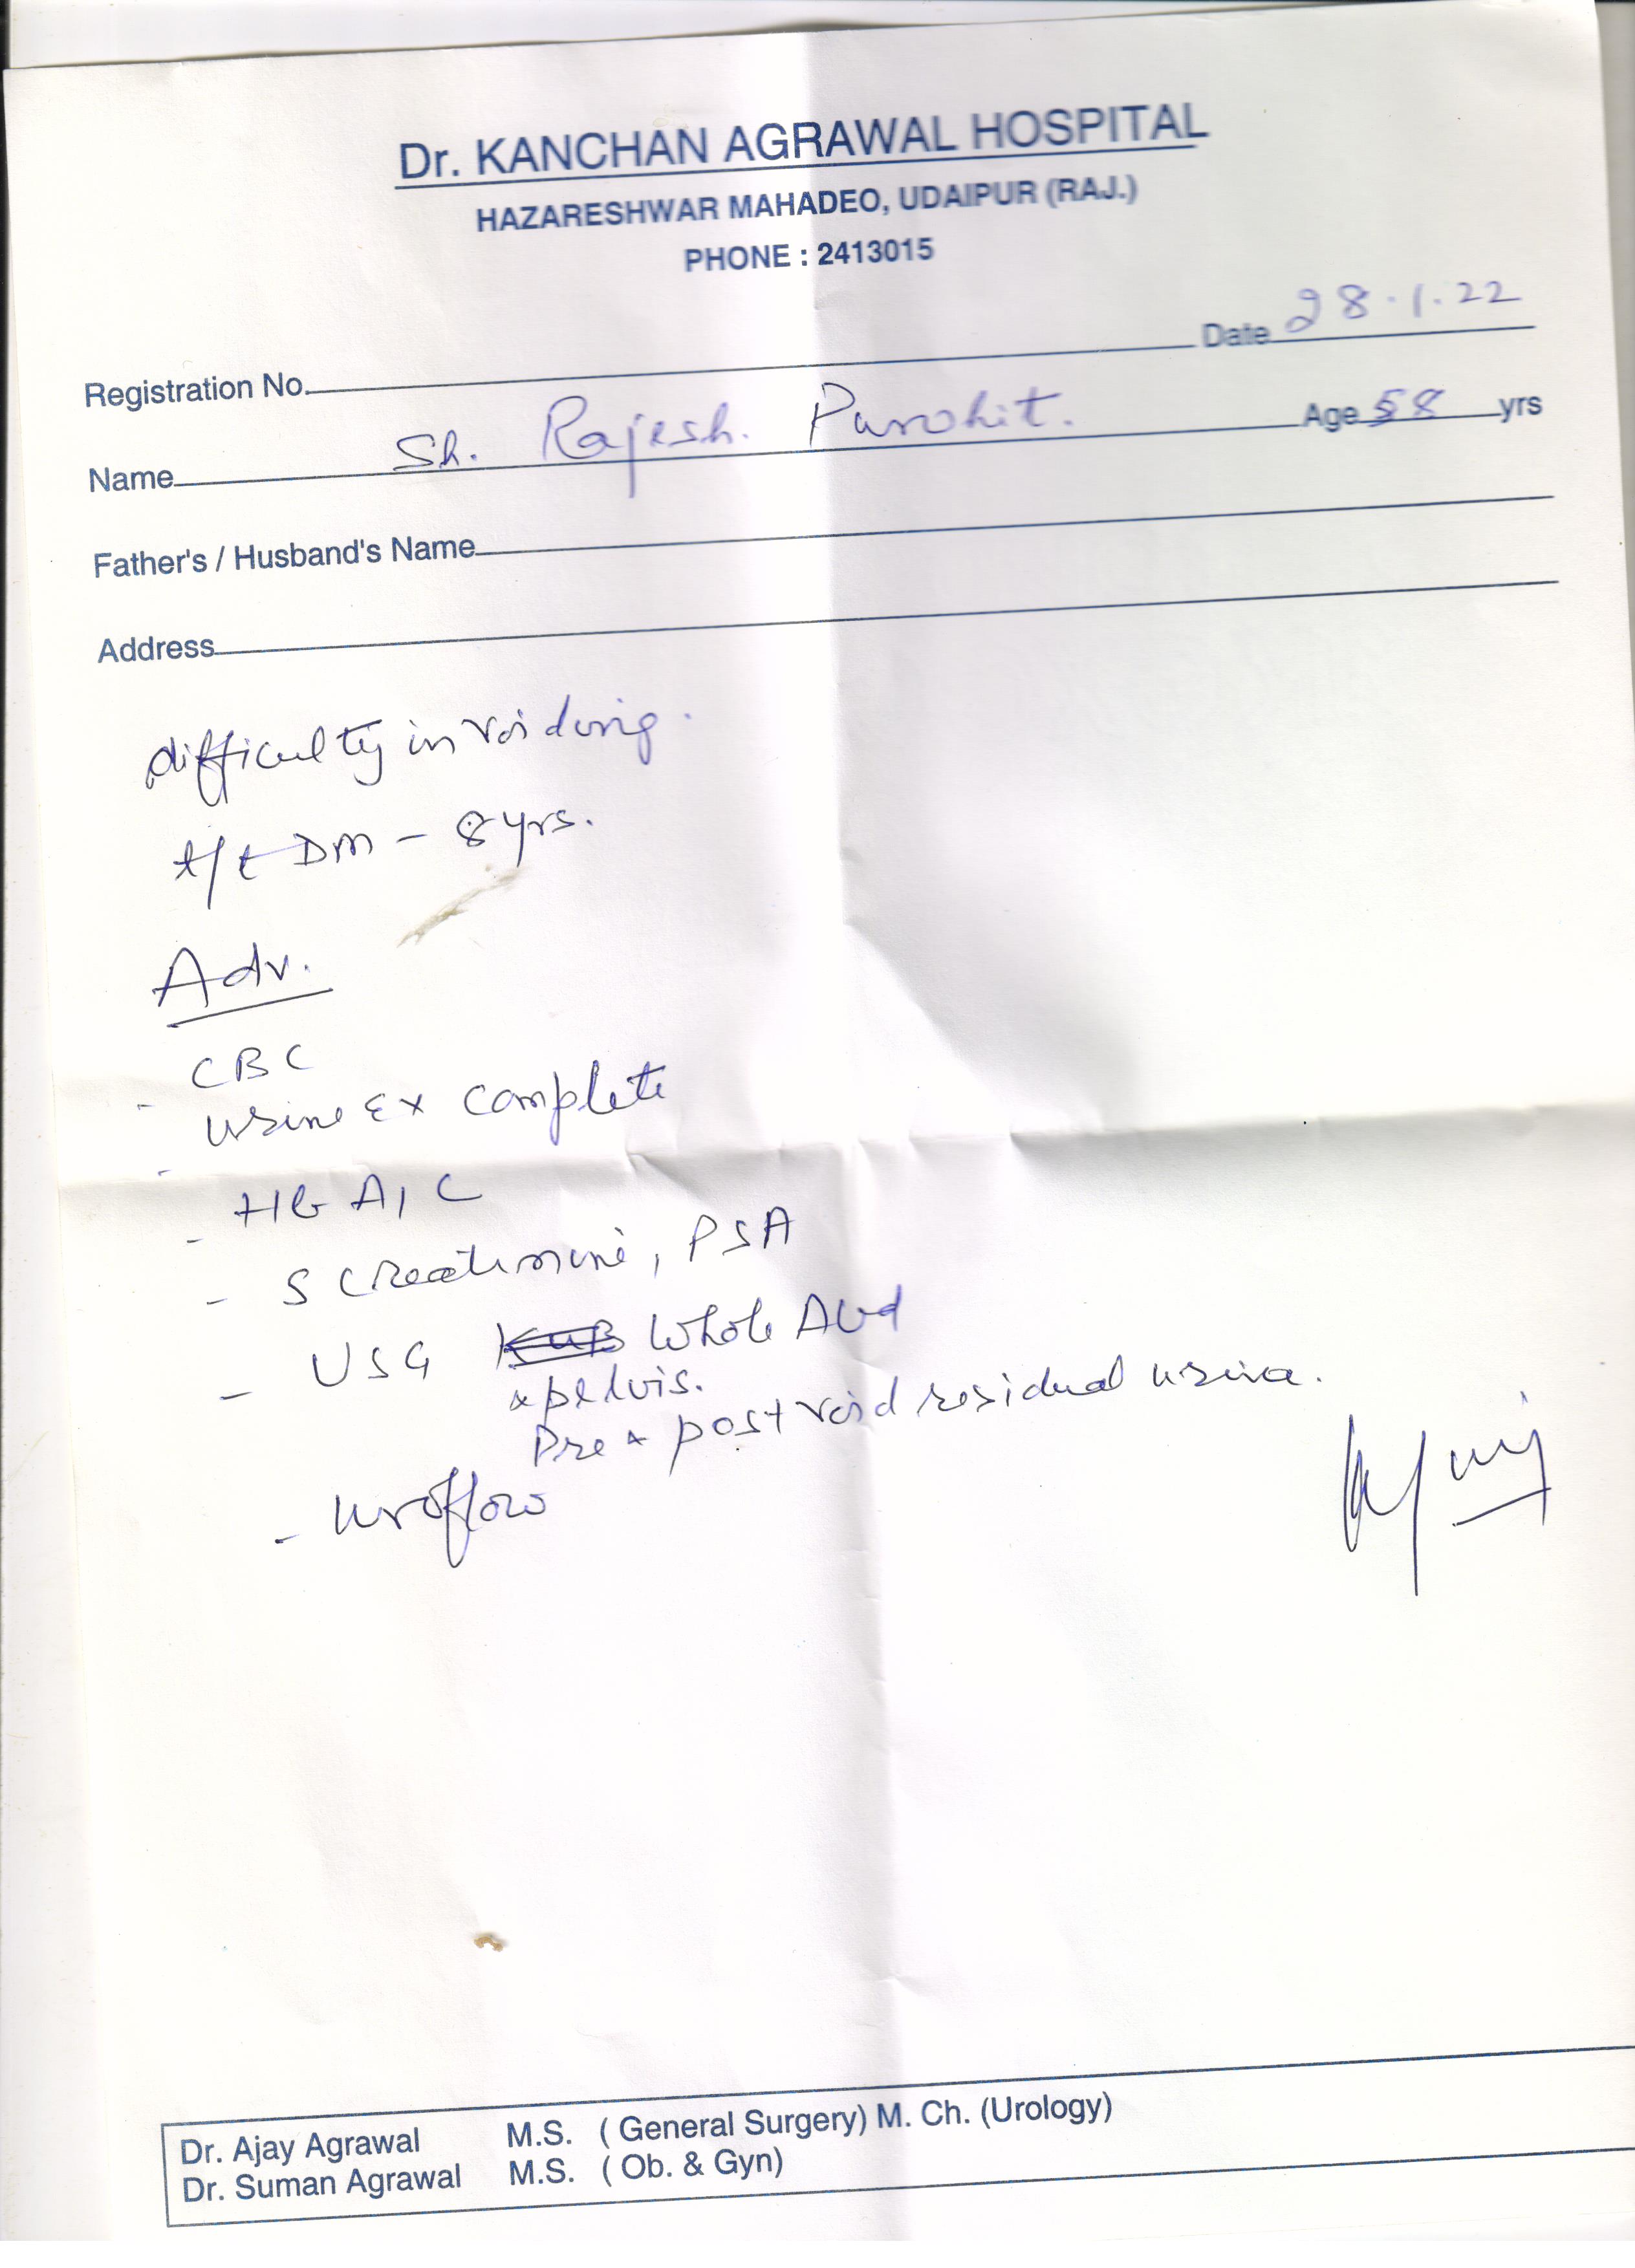 Dr. KANCHAN AGRAWAL HOSPITAL
HAZARESHWAR MAHADEO, UDAIPUR (RAJ.)
PHONE : 2413015
Registration No. Date 28.1.22
Name Sh. Rajesh. Purohit. Age 58 yrs
Father's / Husband's Name
Address
difficulty in voiding.
DM - 8 yrs.
Adv.
CBC
- urine Ex complete
- Hb A1C
- S creatinine, PSA
- USG KUB Whole Abd
& pelvis.
Pre & post void residual urine.
- uroflow
Dr. Ajay Agrawal M.S. ( General Surgery) M. Ch. (Urology)
Dr. Suman Agrawal M.S. ( Ob. & Gyn)